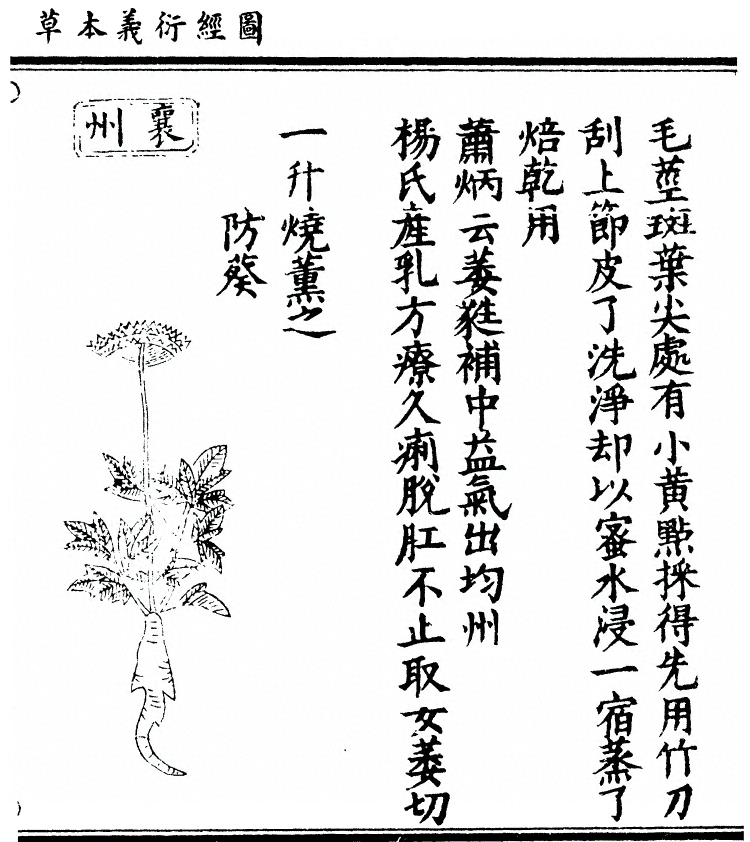 圖經衍義本草
毛莖斑葉尖處有小黃點採得先用竹刀
刮上節皮了洗淨却以蜜水浸一宿蒸了
焙乾用
蕭炳云萎蕤補中益氣出均州
楊氏產乳方療久痢脫肛不止取女萎切
一升燒薰之
防葵
襄州